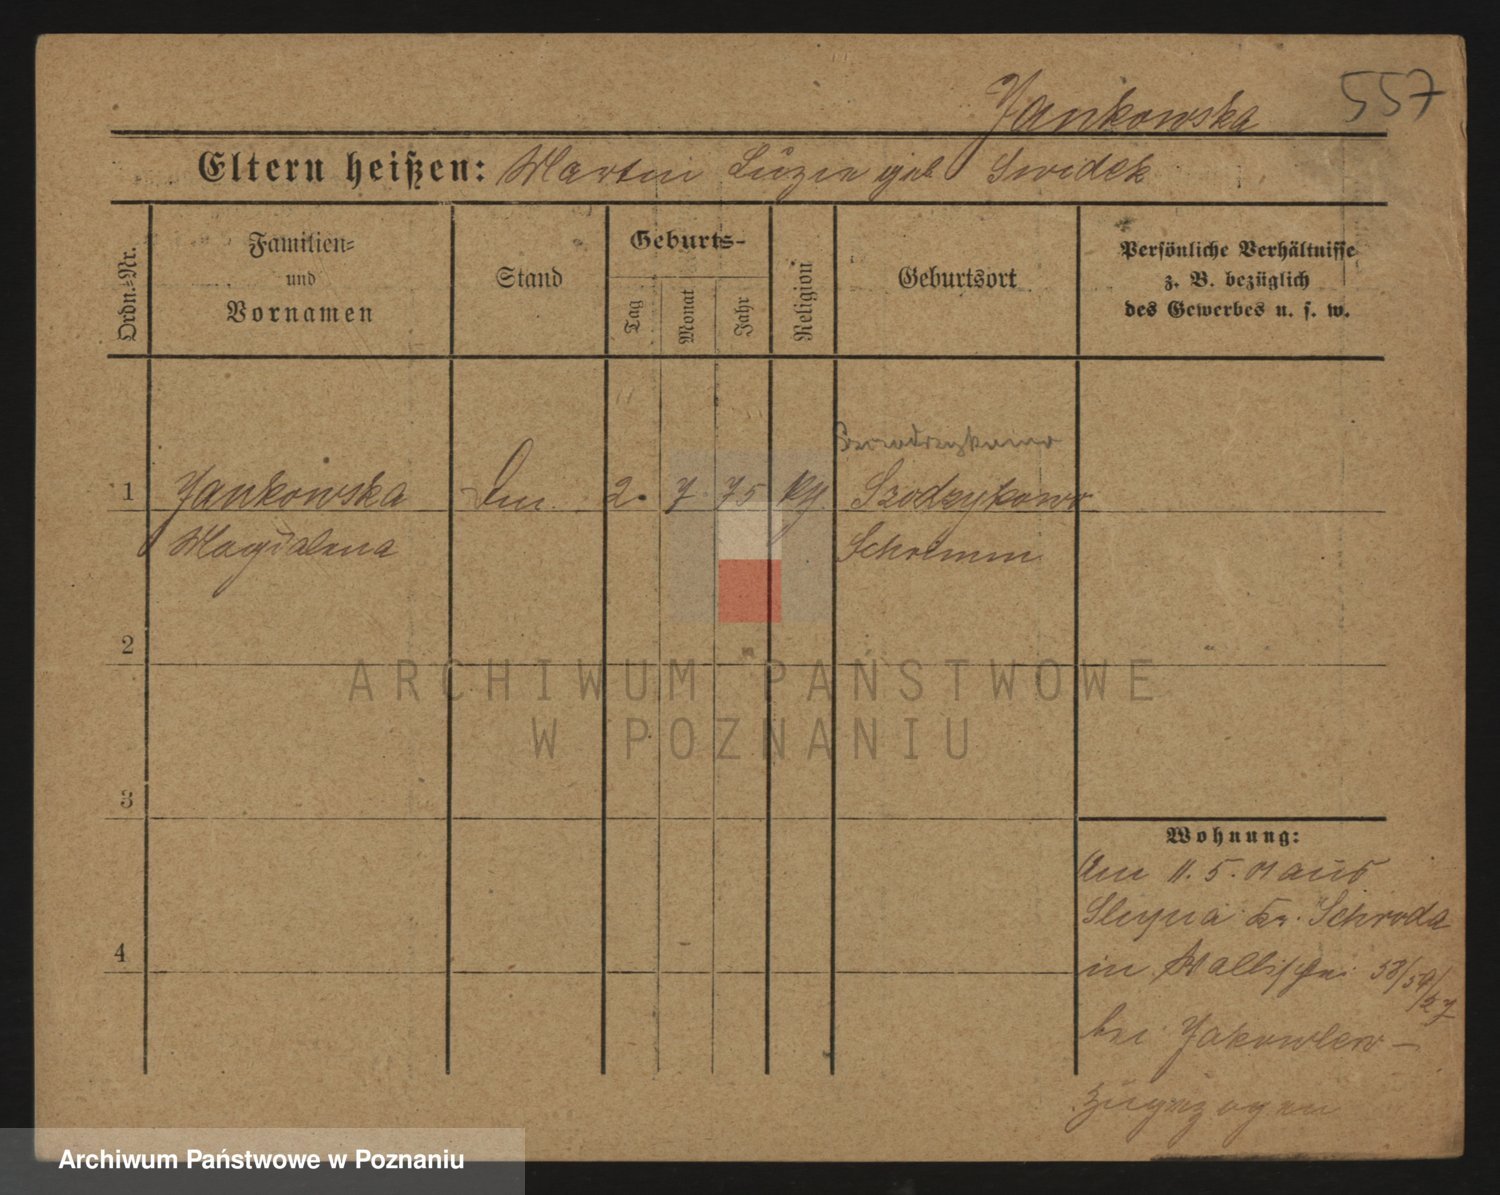 557
Jankowska
Eltern heißen: Martin Luzie geb Swidek
Ordn.-Nr.
Familien-
und
Vornamen
Stand
Geburts-
Tag
Monat
Jahr
Religion
Geburtsort
Persönliche Verhältnisse
z. B. bezüglich
des Gewerbes u. s. w.
1
Jankowska
Magdalena
2. 7. 75
Szodzykowo
Schrimm
2
3
4
Wohnung:
Am 11. 5. 01 aus
Kr. Schroda
in Wallischei 53/54/27
bei Jakowlew –
zugezogen
ARCHIWUM PAŃSTWOWE
W POZNANIU
Archiwum Państwowe w Poznaniu